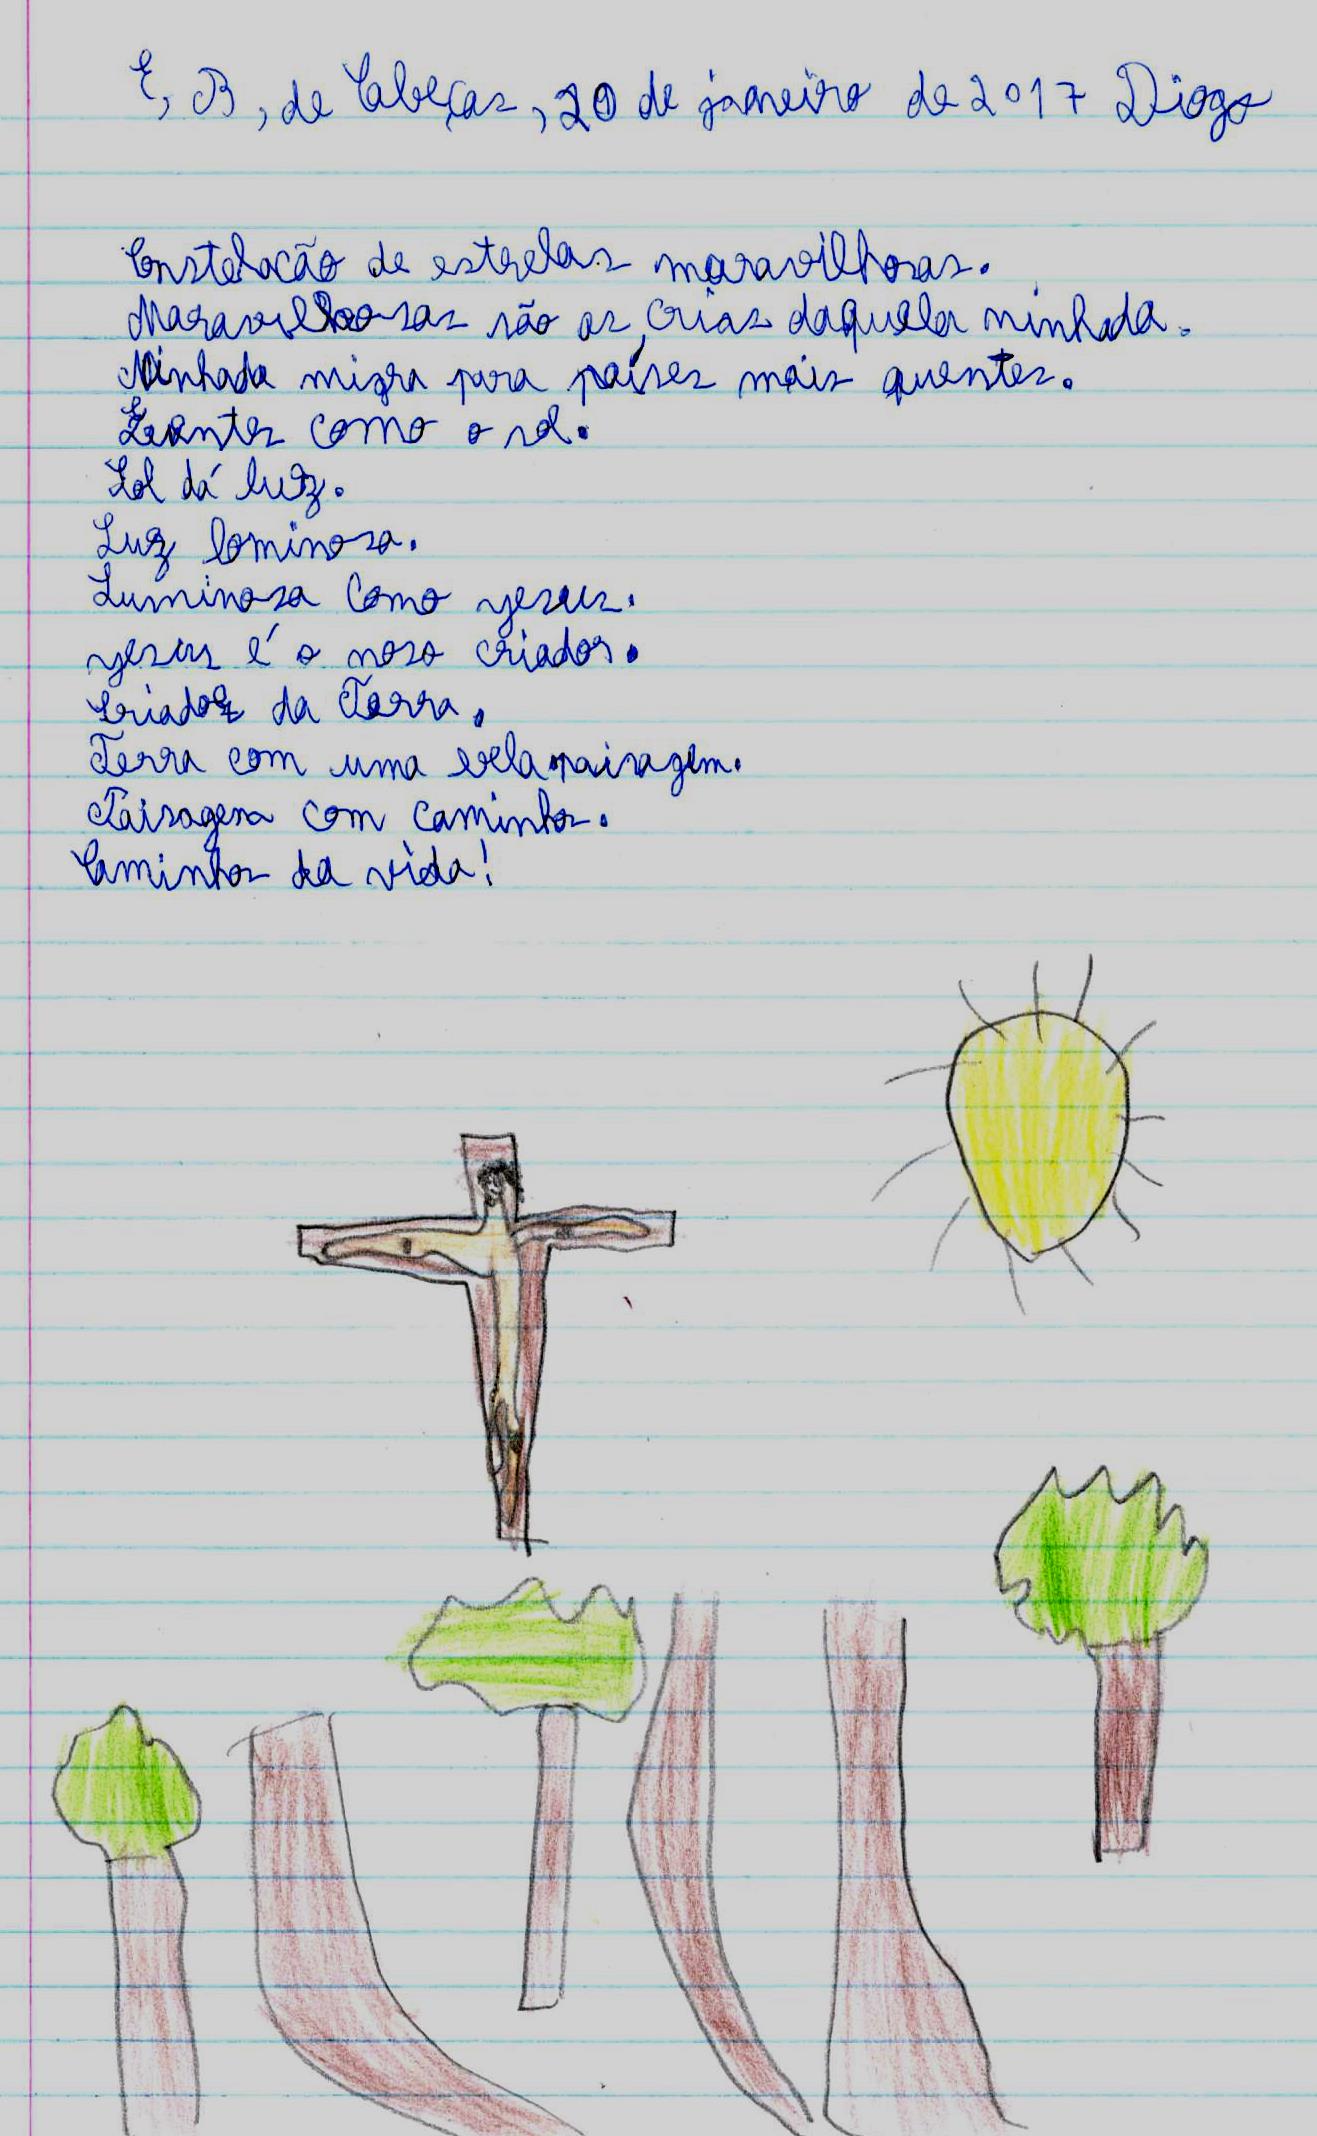 E, B, de Cabeças, 20 de janeiro de 2017 Diogo
Constelacão de estrelas maravilhosas.
Maravilhosas são as crias daquela ninhada.
Ninhada migra para países mais quentes.
como o sol.
Sol dá luz.
Luz lominosa.
Luminosa como yesus.
yesus é o noso criador.
Criador da Terra.
Terra com uma bela paisagem.
Paisagem com caminhos.
Caminhos da vida!